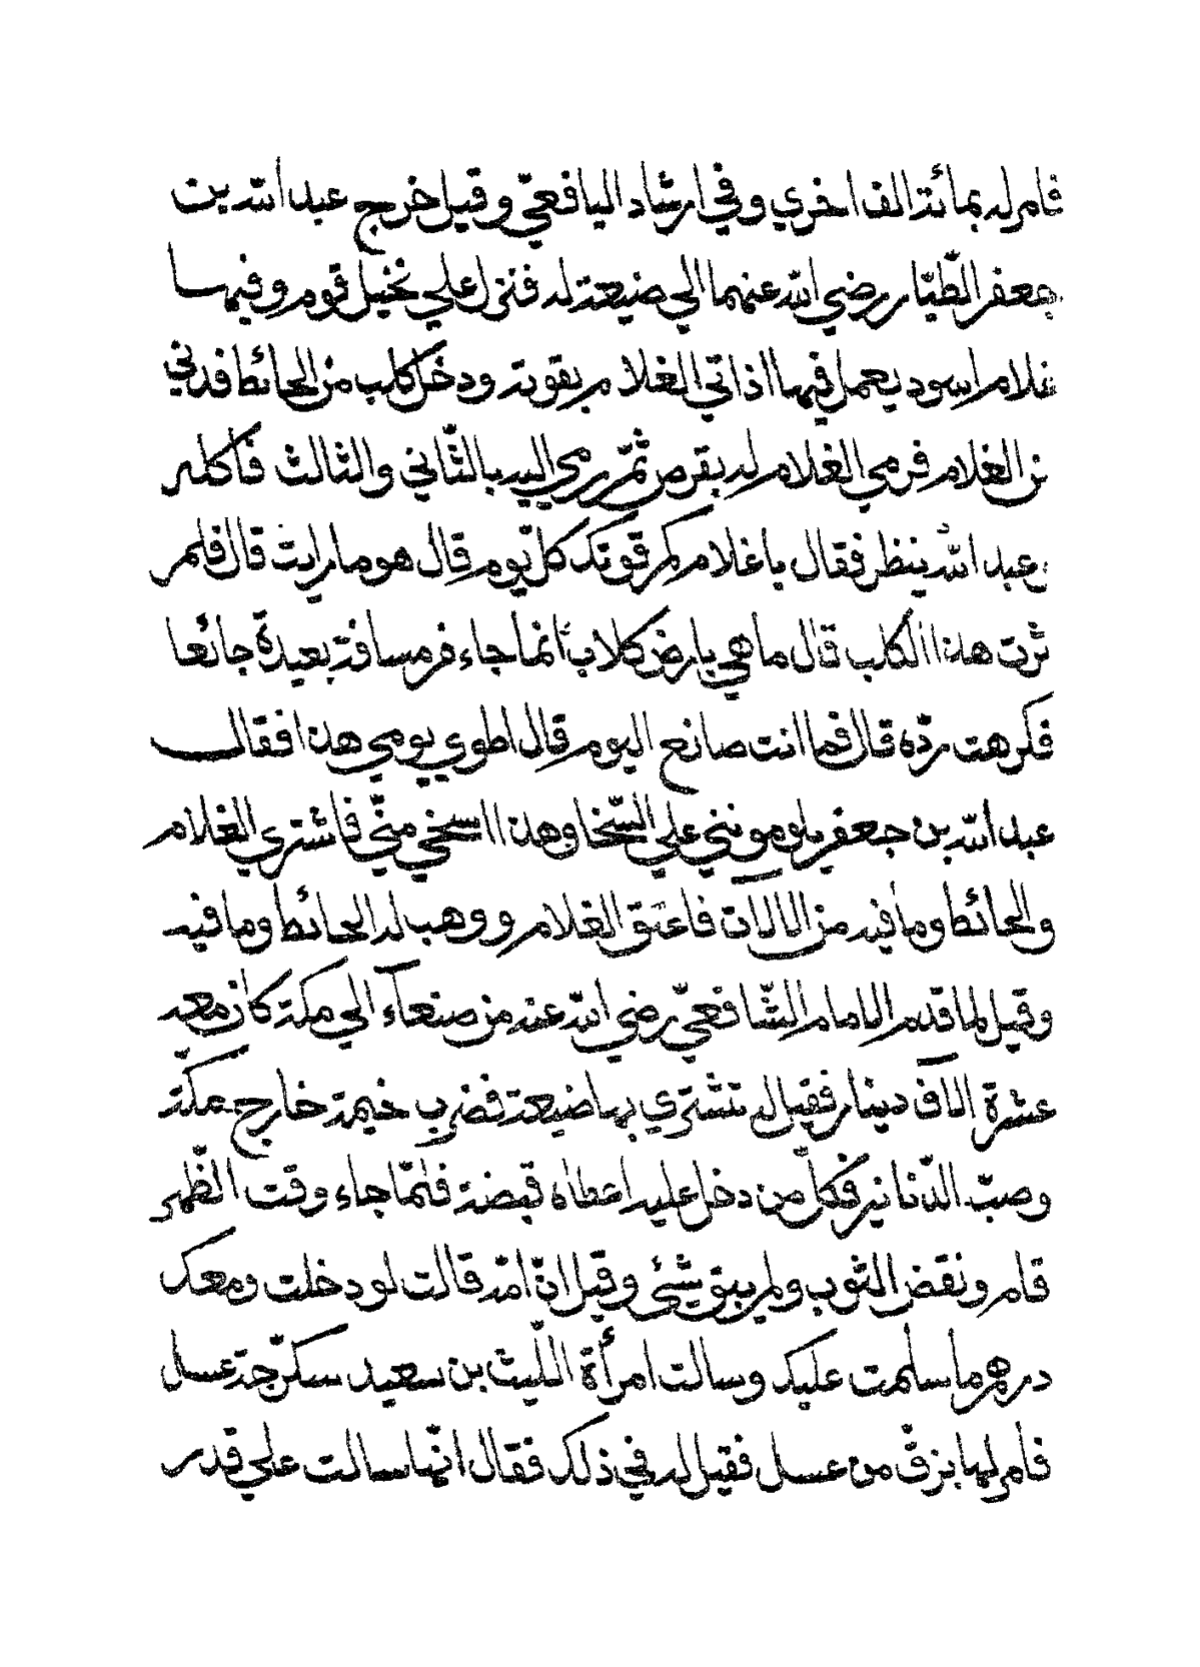 فامر له بمائة الف اخري وفي ارشاد اليافعيّ وقيل خرج عبد الله بن
جعفر الطّيّار رضي الله عنهما الي ضيعة له فنزل علي نخيل قوم وفيها
غلام اسود يعمل فيها اذ اتي الغلام بقوته ودخل كلب من الحائط فدني
من الغلام فرمي الغلام له بقرص ثمّ رمي اليه بالثّاني والثالث فاكله
وعبد الله ينظر فقال يا غلام كم قوتك كلّ يوم قال هو ما رايت قال فلم
ثرت هذا الكلب قال ما هي بارض كلاب انما جاء من مسافة بعيدة جائعا
فكرهت ردّه قال فما انت صانع اليوم قال اطوي يومي هذا فقال
عبد الله بن جعفر يلومونني علي السّخا وهذا اسخي منّي فاشتري الغلام
والحائط وما فيه من الالات فاعتق الغلام ووهب له الحائط وما فيه
وقيل لما قدم الامام الشّافعيّ رضي الله عنه من صنعآء الي مكة كان معه
عشرة الاف دينار فقيل له تشتري بها ضيعة فضرب خيمة خارج مكّة
وصبّ الدّنانير فكلّ من دخل عليه اعطاه قبضة فلمّا جاء وقت الظّهر
قام ونقض الثوب ولم يبق شيئ وقيل انّ امّه قالت لو دخلت ومعك
درهم ما سلمت عليك وسالت امرأة اللّيث بن سعيد سكرّجة عسل
فامر لها بزقّ من عسل فقيل له في ذلك فقال انّها سالت علي قدر